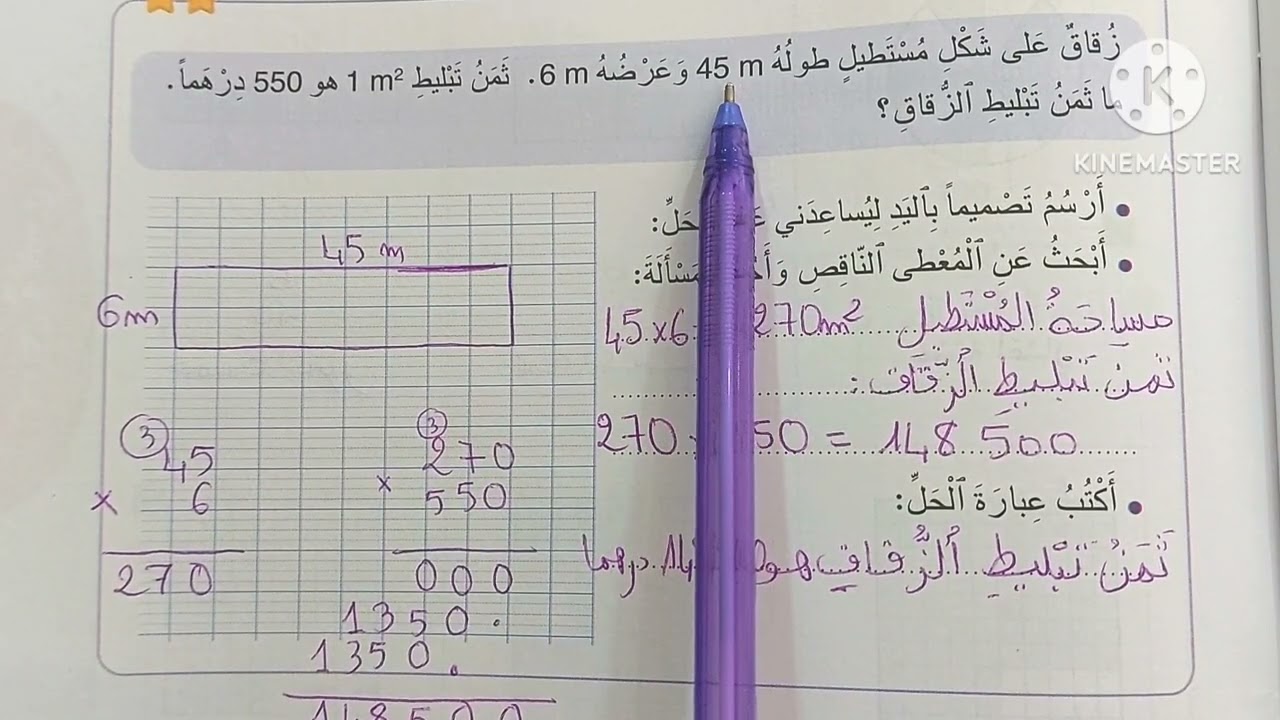 زُقاقٌ عَلى شَكْلِ مُسْتَطيلٍ طولُهُ 45 m وَعَرْضُهُ 6 m. ثَمَنُ تَبْليطِ 1 m² هو 550 دِرْهَماً.
ما ثَمَنُ تَبْليطِ ٱلزُّقاقِ؟
K
KINEMASTER
• أَرْسُمُ تَصْميماً بِٱلْيَدِ لِيُساعِدَني
• أَبْحَثُ عَنِ ٱلْمُعْطى ٱلنّاقِصِ
مساحَةُ المُسْتَطِيل 45×6 270m²
ثَمَنُ تَبْلِيطِ ٱلزُّقَاقِ:
270 50 = 148 500
• أَكْتُبُ عِبارَةَ ٱلْحَلِّ:
ثَمَنُ تَبْلِيطِ ٱلزُّقَاقِ هو درهما
45 m
6m
3
45
× 6
270
3
270
× 550
000
1350.
1350.
148500